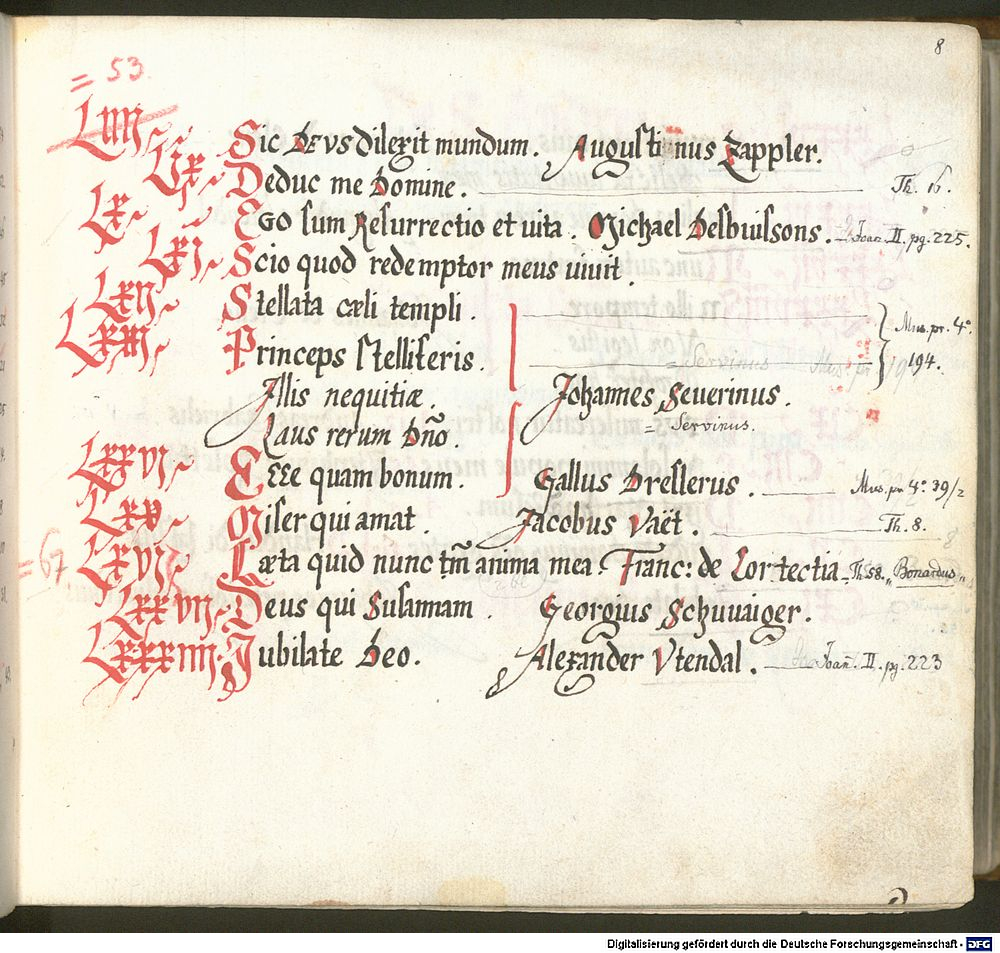 8
= 53.
LIII Sic DEVS dilexit mundum. Augustinus Zappler.
LIX Deduc me Domine. Th. 6.
LX EGo sum Resurrectio et uita. Michael Desbuissons. Joan. II. pg. 225.
LXI Scio quod redemptor meus uiuit.
LXII Stellata cæli templi.
LXIII Princeps stelliferis. = Servinus Mus. pr. 4º. 194.
Illis nequitiæ. Johannes Seuerinus.
Laus rerum dño. = Servinus.
LXXVI Ecce quam bonum. Gallus Dresserus. Mus. pr. 4º 39/2
LXV Miser qui amat. Jacobus Vaët. Th. 8.
= 67 LXVII Læta quid nunc tm̃ anima mea. Franc: de Cortectia Th 58. „Bonardus“
LXXVII Deus qui Susannam. Georgius Schuuaiger.
LXXXIIII Iubilate Deo. Alexander Vtendal. Joan. II. pg. 223
Digitalisierung gefördert durch die Deutsche Forschungsgemeinschaft - DFG